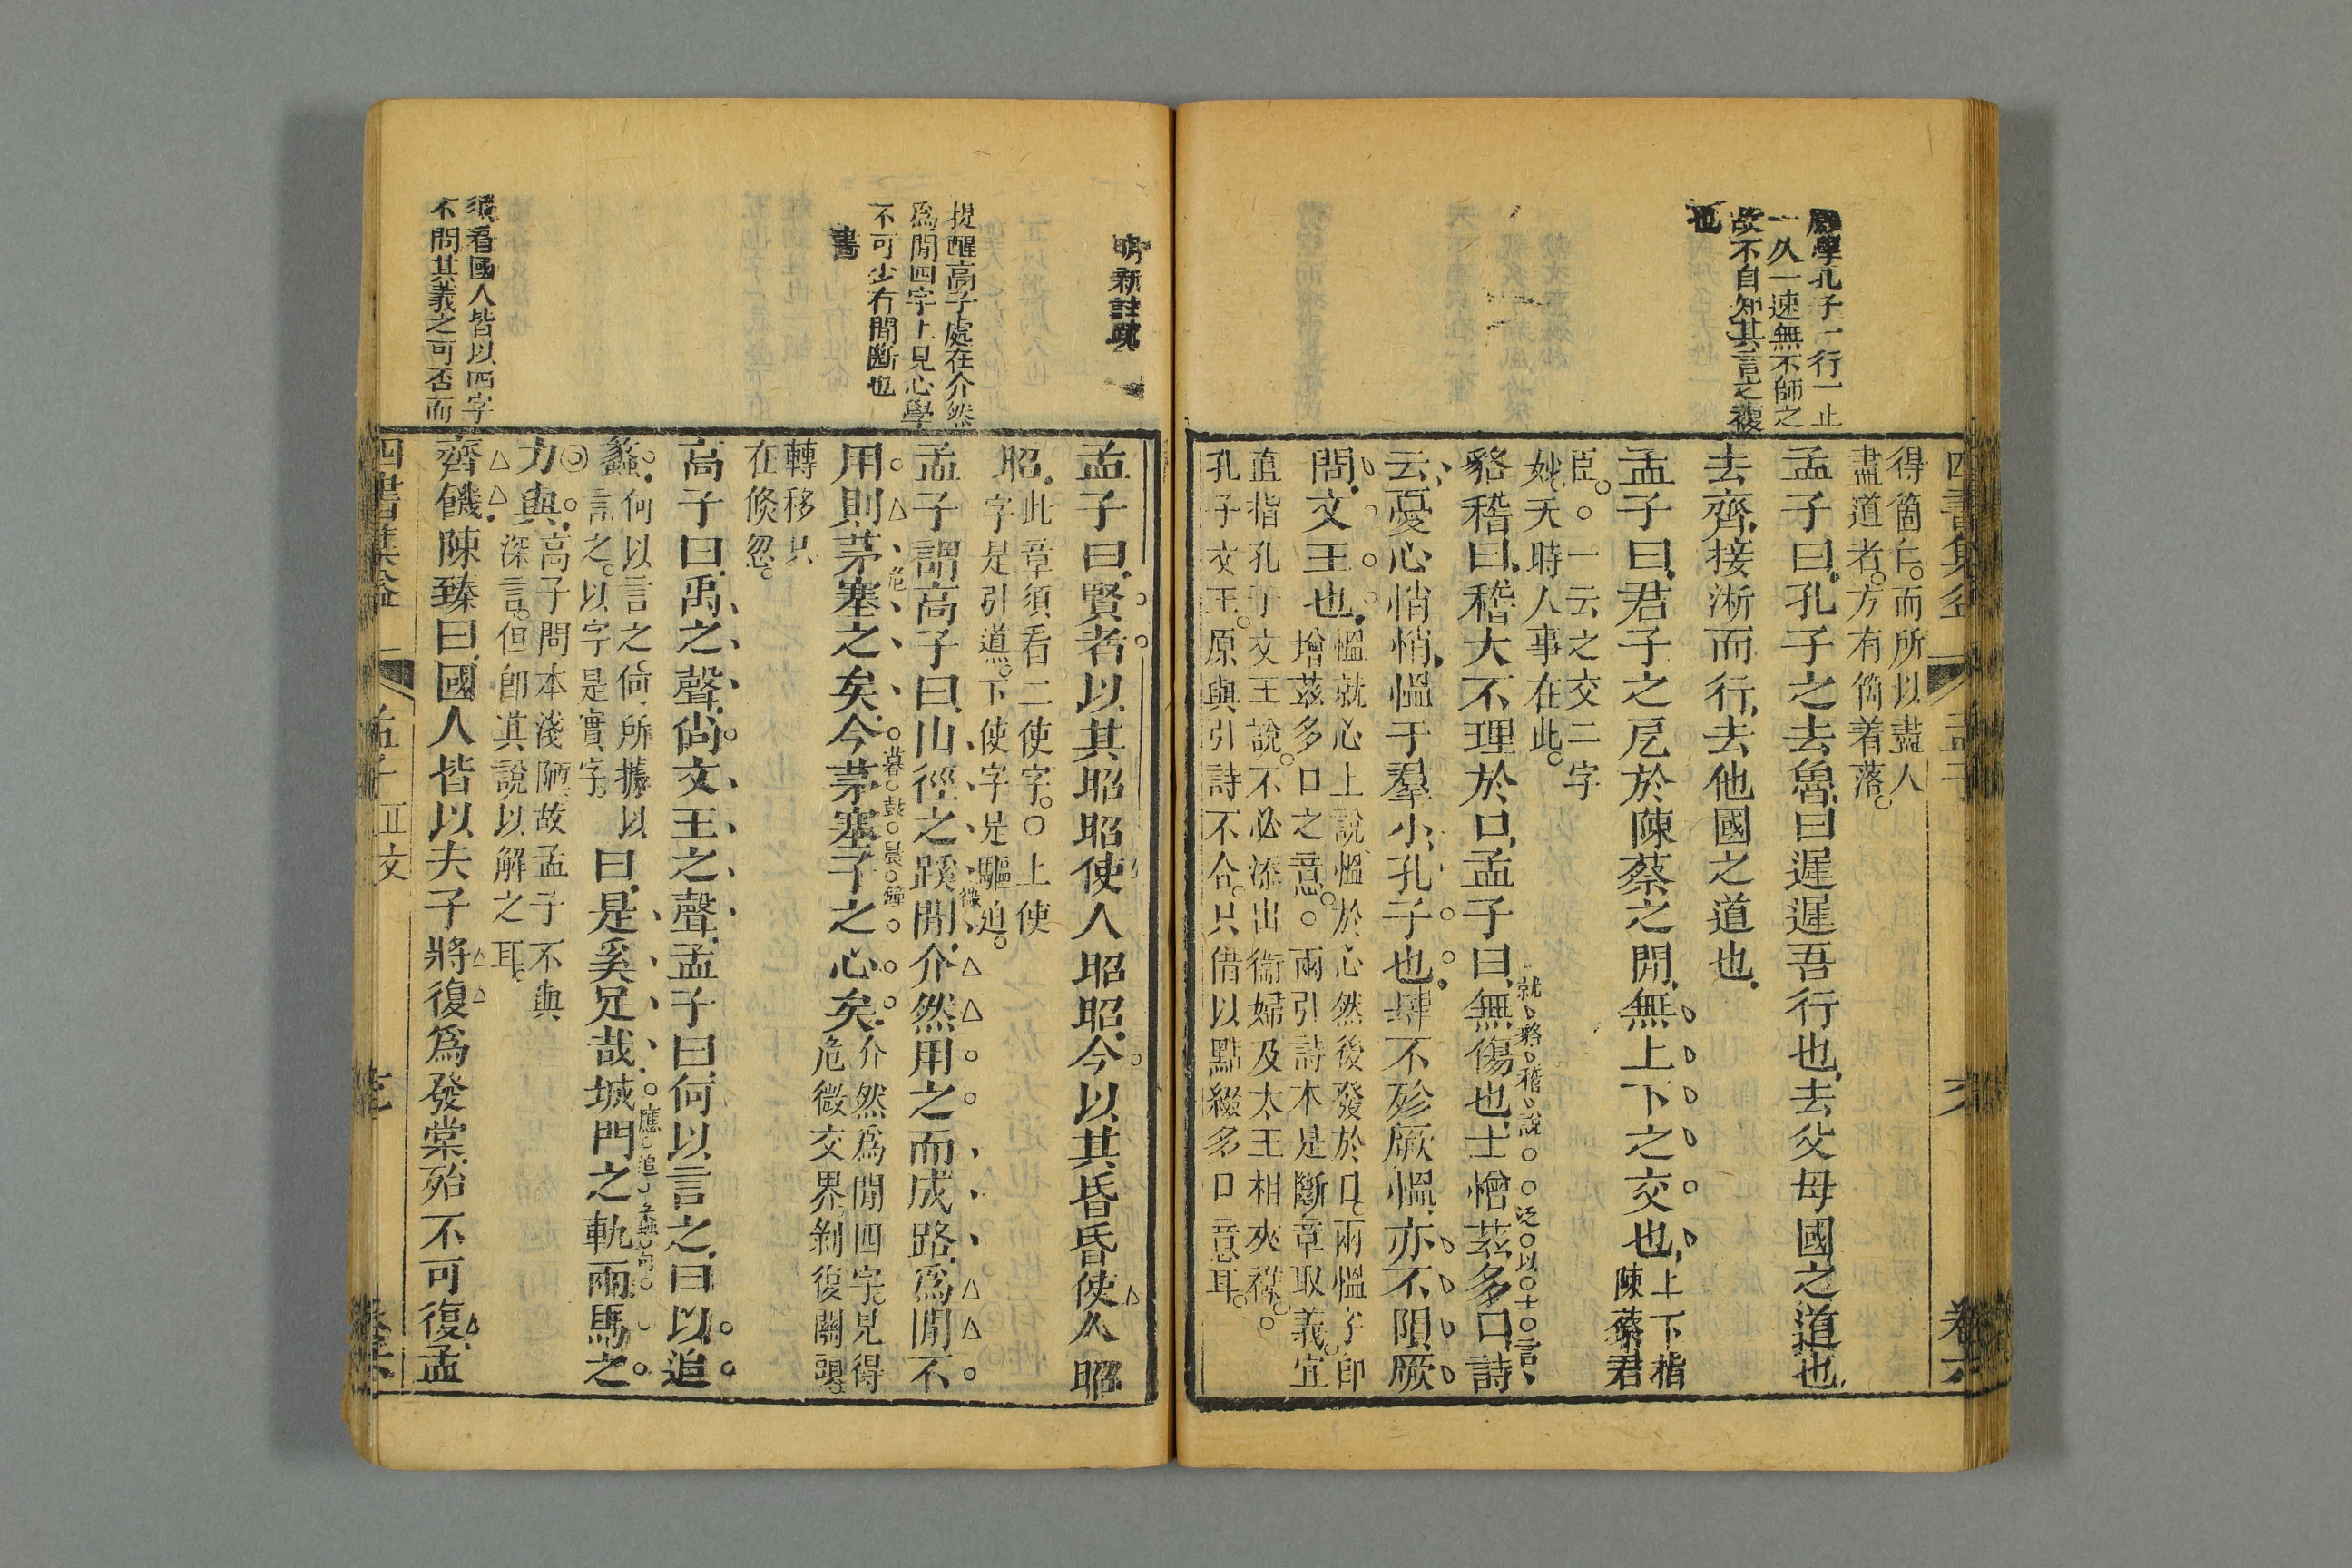 願學孔子一行一止
一久一速無不師之
故不自知其言之複
也
得箇仁。而所以盡人
盡道者。方有箇着落。
孟子曰孔子之去魯曰遲遲吾行也去父母國之道也
去齊接淅而行去他國之道也
孟子曰君子之戹於陳蔡之閒無上下之交也上下指
陳蔡君
臣。○一云之交二字
妙天時人事在此。
貉稽曰稽大不理於口孟子曰無傷也士憎茲多口詩
就貉稽說。泛以士言
云憂心悄悄慍于羣小孔子也肆不殄厥慍亦不隕厥
問文王也慍就心上說慍於心然後發於口兩慍字卽
增茲多口之意。○兩引詩本是斷章取義。宜
直指孔子文王說。不必添出衞婦及太王相夾襍。
孔子文王。原與引詩不合。只借以點綴多口意耳。
四書集益
孟子
卷六
明新註疏
提醒高子處在介然
爲閒四字上見心學
不可少有閒斷也
書
須看國人皆以四字
不問其義之可否而
孟子曰賢者以其昭昭使人昭昭今以其昏昏使人昭
昭此章須看二使字。○上使
字是引道。下使字是驅迫。
孟子謂高子曰山徑之蹊閒介然用之而成路爲閒不
微
用則茅塞之矣今茅塞子之心矣介然爲閒四字見得
危微交界剝復關頭
危
暮鼓晨鐘
轉移只
在倏忽。
高子曰禹之聲尙文王之聲孟子曰何以言之曰以追
蠡何以言之倘所據以
言之。以字是實字。
曰是奚足哉城門之軌兩馬之
應追蠡句
力與高子問本淺陋故孟子不與
深言。但卽其說以解之耳。
齊饑陳臻曰國人皆以夫子將復爲發棠殆不可復孟
四書集益
孟子正文
卷六